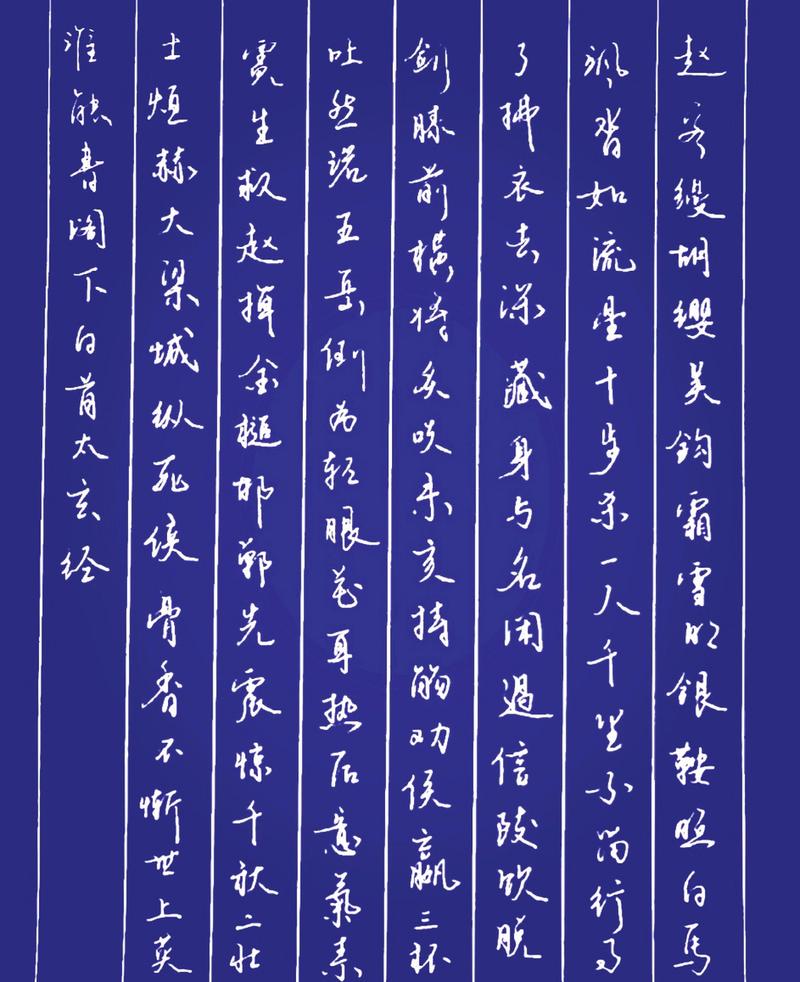 赵客缦胡缨吴钩霜雪明银鞍照白马
飒沓如流星十步杀一人千里不留行事
了拂衣去深藏身与名闲過信陵饮脱
剑膝前横将炙啖朱亥持觞劝侯嬴三杯
吐然诺五岳倒为轻眼花耳热后意氣素
霓生救赵挥金槌邯郸先震惊千秋二壮
士烜赫大梁城纵死侠骨香不惭世上英
谁能書阁下白首太玄经